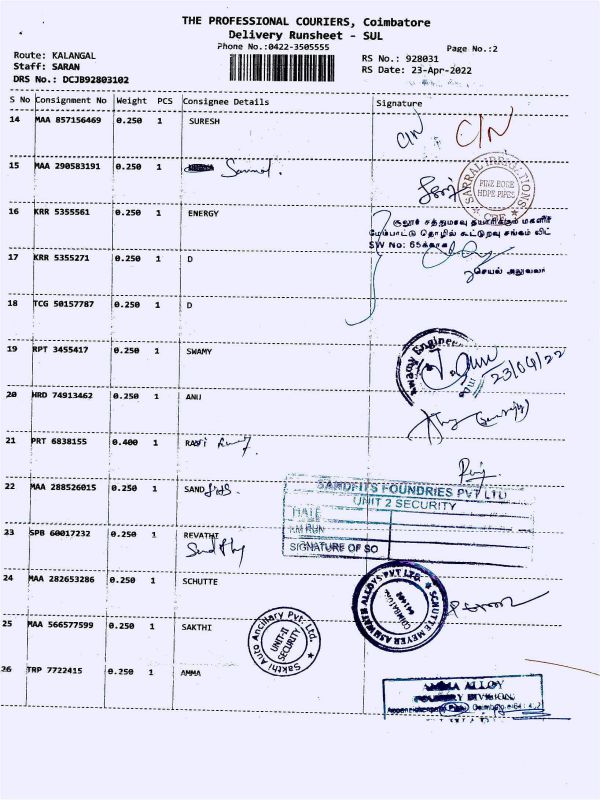 THE PROFESSIONAL COURIERS, Coimbatore
Delivery Runsheet - SUL
Phone No.:0422-3505555
Page No.:2
Route: KALANGAL
Staff: SARAN
DRS No.: DCJB92803102
RS No.: 928031
RS Date: 23-Apr-2022
S No Consignment No Weight PCS Consignee Details Signature
14 MAA 857156469 0.250 1 SURESH C/N C/N
15 MAA 290583191 0.250 1
SARRAL IRRIGATIONS
PINE BORE
HDPE PIPES
CBE
16 KRR 5355561 0.250 1 ENERGY
சூலூர் சத்துமாவு தயாரிக்கும் மகளிர்
மேம்பாட்டு தொழில் கூட்டுறவு சங்கம் லிட்
SW No: 65க்காக
செயல் அலுவலர்
17 KRR 5355271 0.250 1 D
18 TCG 50157787 0.250 1 D
19 RPT 3455417 0.250 1 SWAMY
Swamy Engineer
23/04/22
20 HRD 74913462 0.250 1 ANU
21 PRT 6838155 0.400 1
22 MAA 288526015 0.250 1 SAND
SANDFITS FOUNDRIES PVT LTD
UNIT 2 SECURITY
DATE
KM RUN
SIGNATURE OF SO
23 SPB 60017232 0.250 1 REVATHI
24 MAA 282653286 0.250 1 SCHUTTE
SCHUTTE MEYER ASHWATH ALLOYS PVT LTD.
COIMBATORE
25 MAA 566577599 0.250 1 SAKTHI
Sakthi Auto Ancillary Pvt. Ltd.
UNIT-II
SECURITY
26 TRP 7722415 0.250 1 AMMA
AMMA ALLOY
FOUNDRY DIVISION